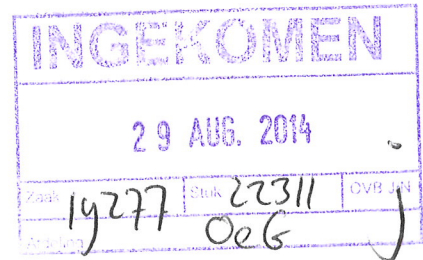 INGEKOMEN
29 AUG. 2014
Zaak 19277 Stuk 22311 OVB J/N
OeG